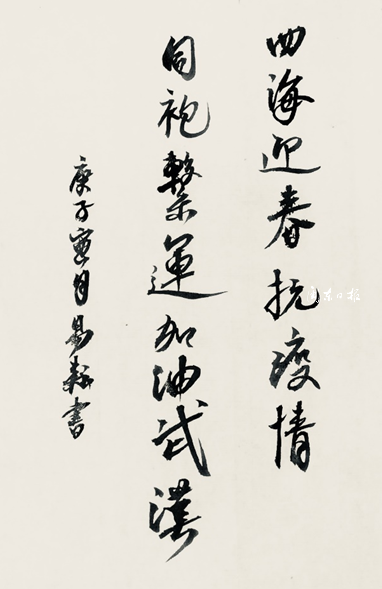 四海迎春抗疫情
同袍繫運加油武漢
庚子寅月易耕書